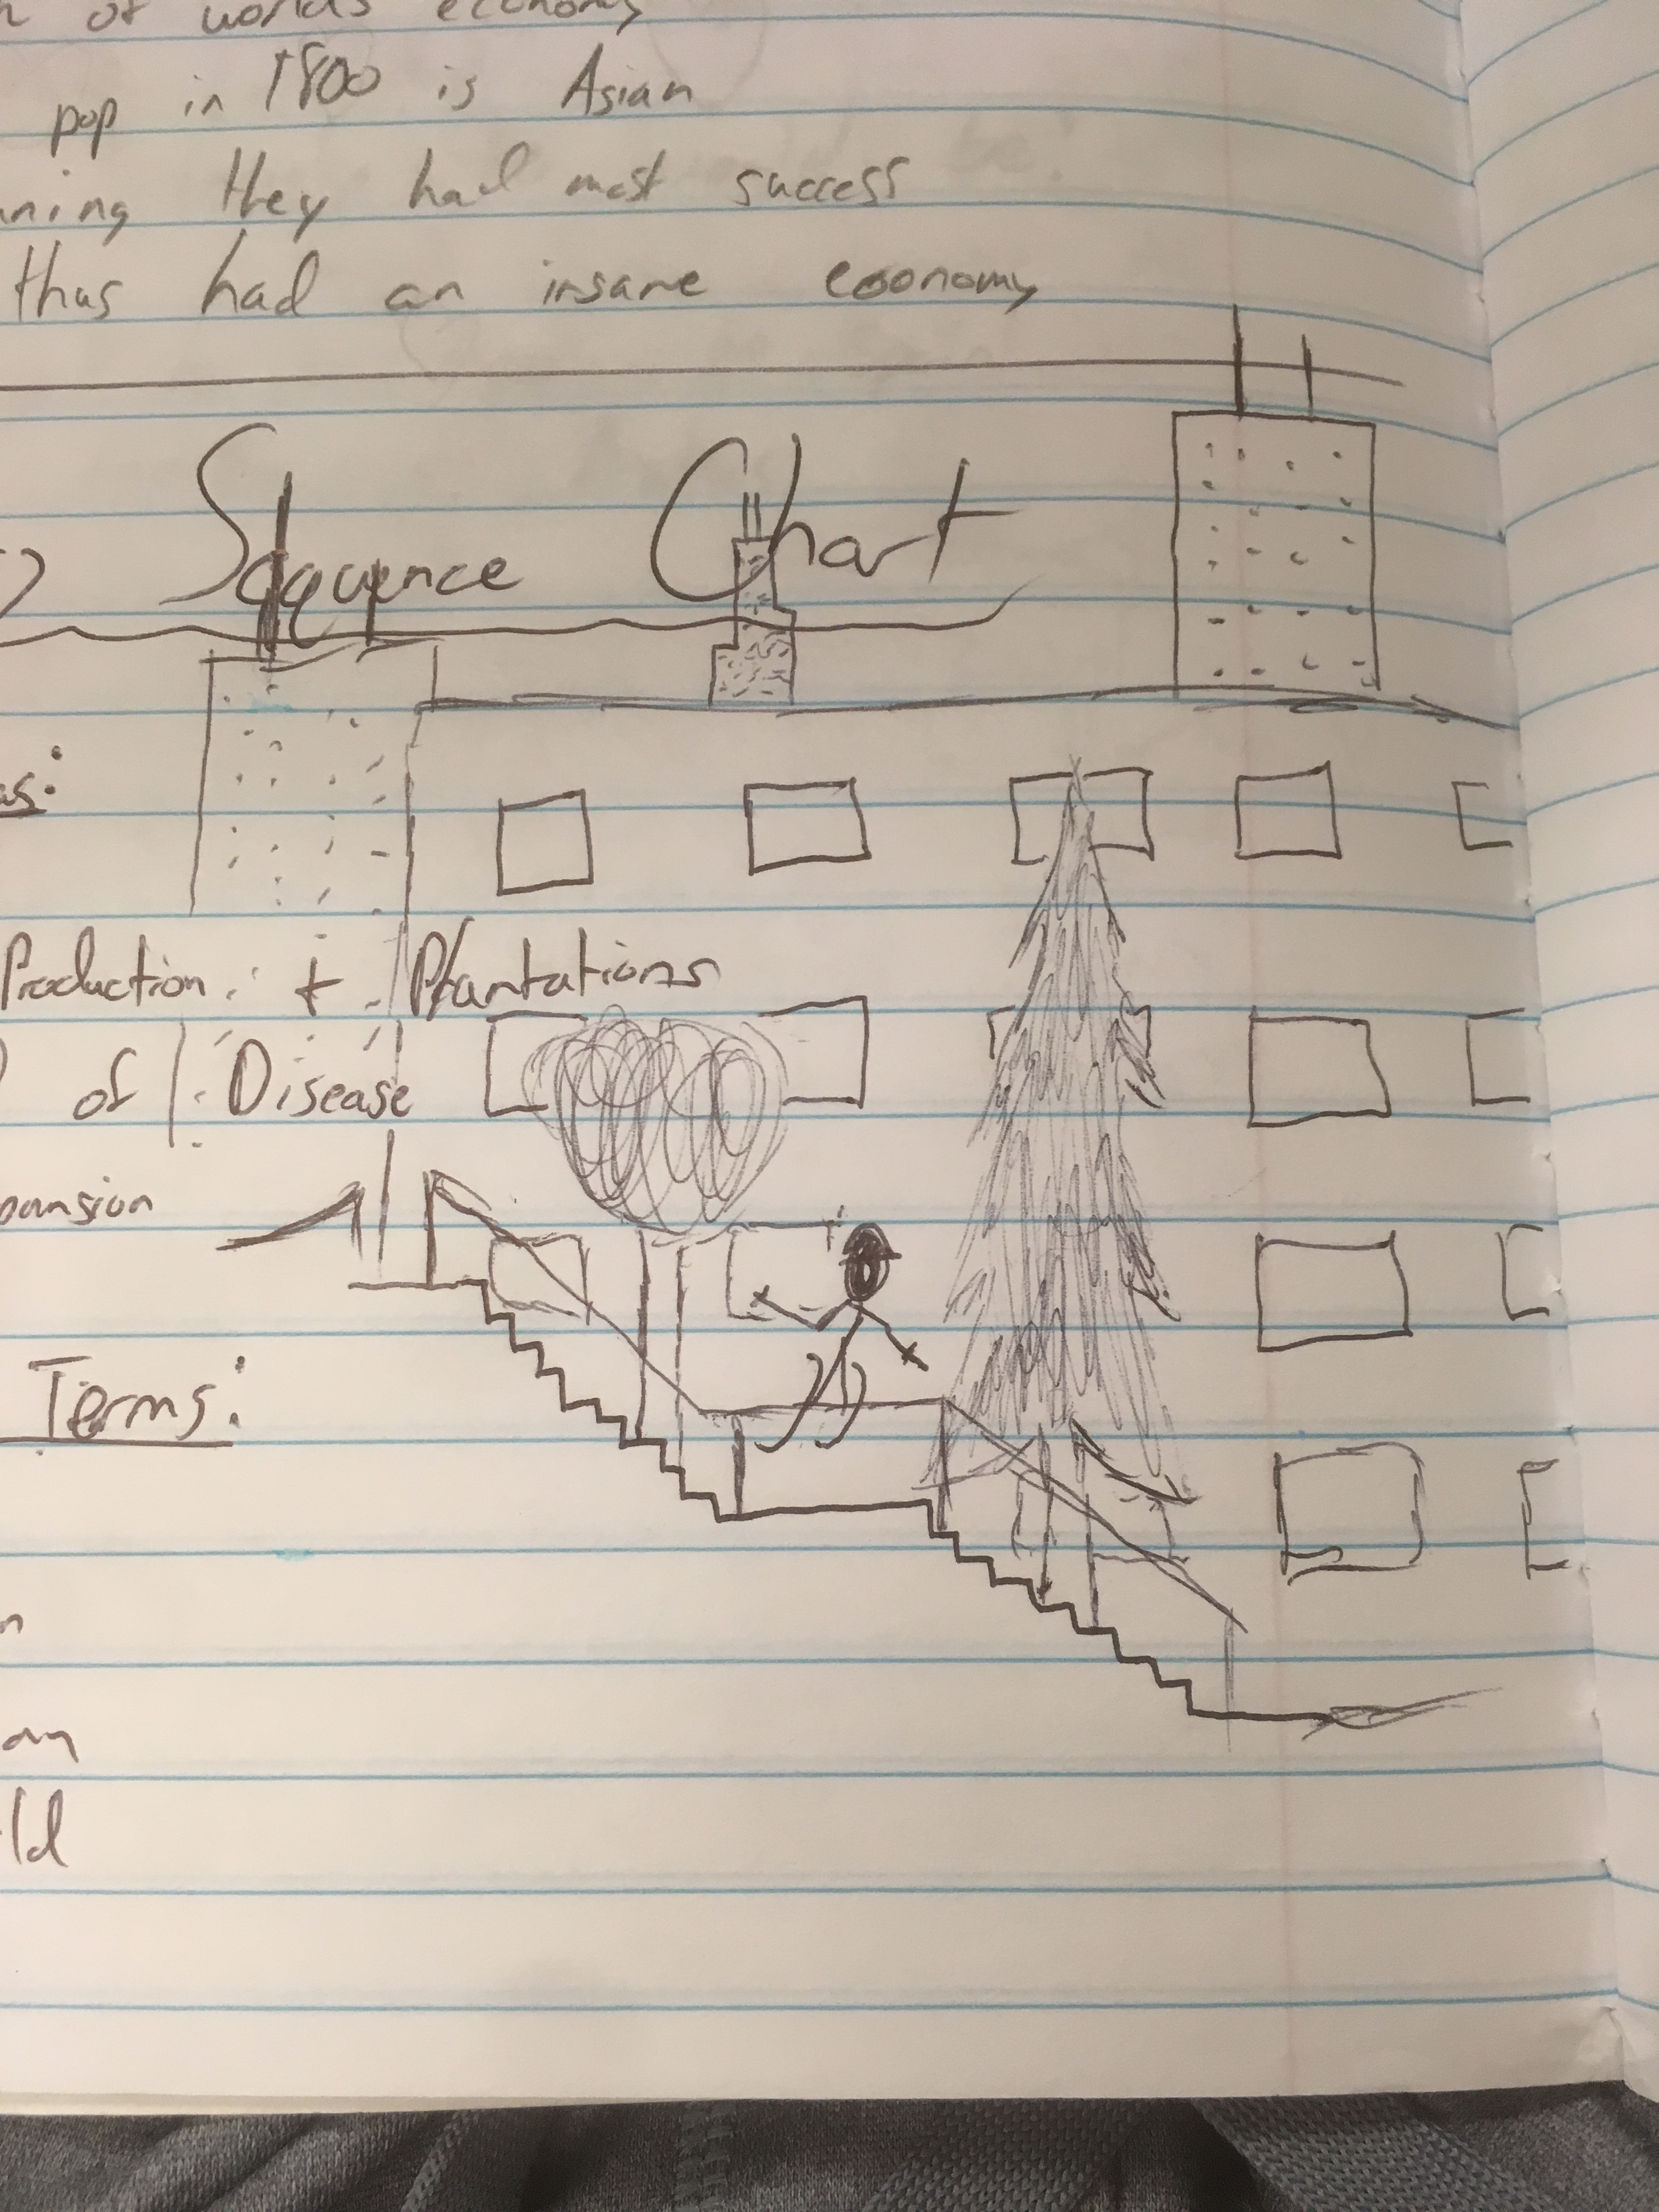 of worlds economy
pop in 1800 is Asian
they had most success
thus had an insane economy
Sequence Chart
Production + Plantations
of Disease
Terms: